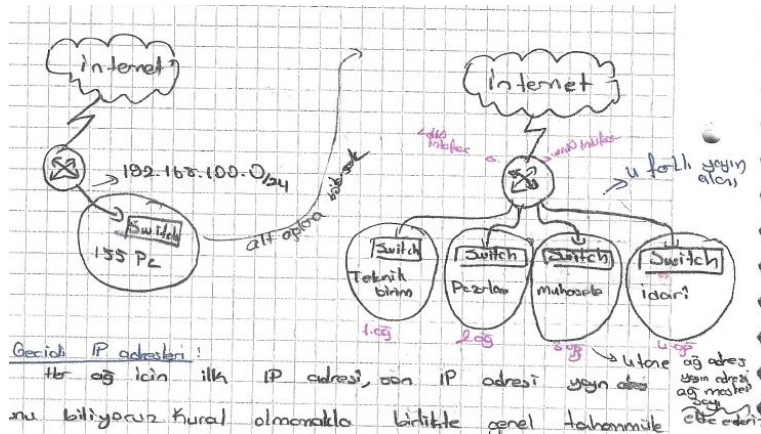 internet
192.168.100.0/24
Switch
155 Pc
alt ağlara
internet
4 farklı yayın
alanı
Switch
Teknik
birim
Switch
Switch
muhasebe
Switch
idari
1.ağ
2.ağ
4.ağ
4 tane ağ adresi
yayın adresi
ağ maskesi
elde ederiz
Gecidi IP adresleri:
Her ağ için ilk IP adresi, son IP adresi yayın
biliyoruz kural olmamakla birlikte genel